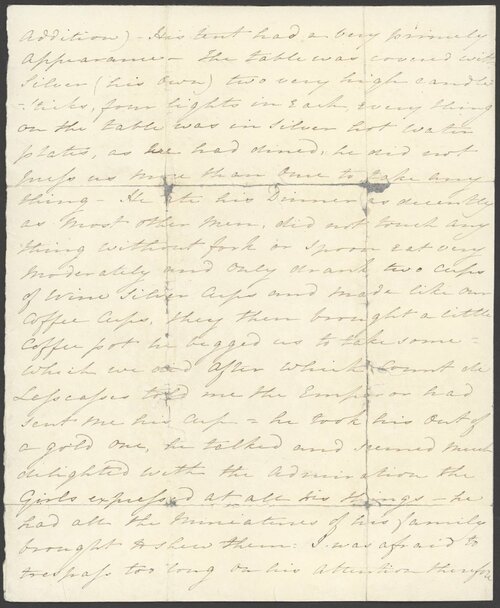 addition) - His tent had a very princely
appearance - The table was covered with
Silver (his own) two very high candle
-sticks, four lights in Each, Every thing
on the table was in Silver hot water
plates, as we had dined, he did not
press us more than once to take any
thing - He ate his Dinner as decently
as most other men, did not touch any
thing without fork or spoon eat very
moderately and only drank two cups
of Wine Silver Cups and made like our
Coffee Cups, they then brought a little
Coffee pot he begged us to take some -
which we did After which Count de
Lascases told me the Emperor had
sent me his Cup - he took his out of
a gold one, he talked and seemed much
delighted with the Admiration the
Girls expressed at all his things - he
had all the Miniatures of his family
brought to shew them: I was afraid to
trespass too long on his attention therefore